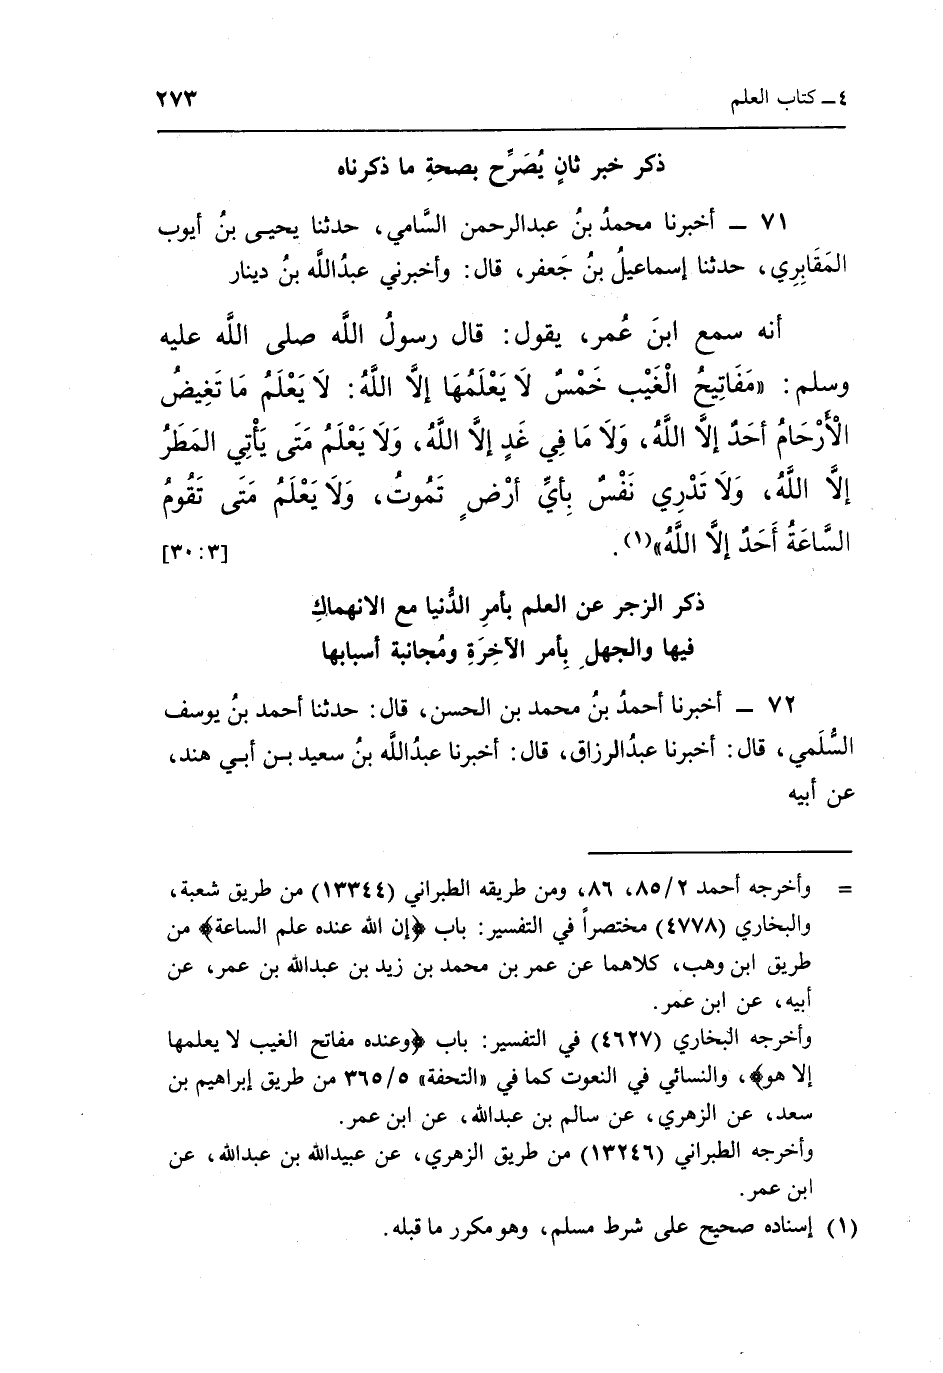 ٤ ــ كتاب العلم ٢٧٣
ذكر خبر ثانٍ يُصَرِّح بصحةِ ما ذكرناه
٧١ ــ أخبرنا محمدُ بنُ عبدالرحمن السَّامي، حدثنا يحيـى بنُ أيوب
المَقَابِرِي، حدثنا إسماعيلُ بنُ جَعفر، قال: وأخبرني عبدُاللَّه بنُ دينار
أنه سمع ابنَ عُمر، يقول: قال رسولُ اللَّه صلى اللَّه عليه
وسلم: «مَفَاتِيحُ الْغَيْب خَمْسٌ لَا يَعْلَمُهَا إلاَّ اللَّهُ: لَا يَعْلَمُ مَا تَغِيضُ
الْأَرْحَامُ أحَدٌ إلاَّ اللَّهُ، وَلَا مَا فِي غَدٍ إلاَّ اللَّهُ، وَلَا يَعْلَمُ مَتَى يَأْتِي المَطَرُ
إلاَّ اللَّهُ، وَلَا تَدْرِي نَفْسٌ بِأيِّ أرْضٍ تَمُوتُ، وَلَا يَعْلَمُ مَتَى تَقُومُ
السَّاعَةُ أَحَدٌ إلاَّ اللَّهُ»(١). [٣٠:٣]
ذكر الزجر عن العلم بأمرِ الدُّنيا مع الانهماكِ
فيها والجهلِ بِأمر الآخِرَةِ ومُجانبة أسبابها
٧٢ ــ أخبرنا أحمدُ بنُ محمد بن الحسن، قال: حدثنا أحمد بنُ يوسف
السُّلَمي، قال: أخبرنا عبدُالرزاق، قال: أخبرنا عبدُاللَّه بنُ سعيد بـن أبـي هند،
عن أبيه
= وأخرجه أحمد ٨٥/٢، ٨٦، ومن طريقه الطبراني (١٣٣٤٤) من طريق شعبة،
والبخاري (٤٧٧٨) مختصراً في التفسير: باب ﴿إن الله عنده علم الساعة﴾ من
طريق ابن وهب، كلاهما عن عمر بن محمد بن زيد بن عبدالله بن عمر، عن
أبيه، عن ابن عمر.
وأخرجه البخاري (٤٦٢٧) في التفسير: باب ﴿وعنده مفاتح الغيب لا يعلمها
إلا هو﴾، والنسائي في النعوت كما في «التحفة» ٣٦٥/٥ من طريق إبراهيم بن
سعد، عن الزهري، عن سالم بن عبدالله، عن ابن عمر.
وأخرجه الطبراني (١٣٢٤٦) من طريق الزهري، عن عبيدالله بن عبدالله، عن
ابن عمر.
(١) إسناده صحيح على شرط مسلم، وهو مكرر ما قبله.